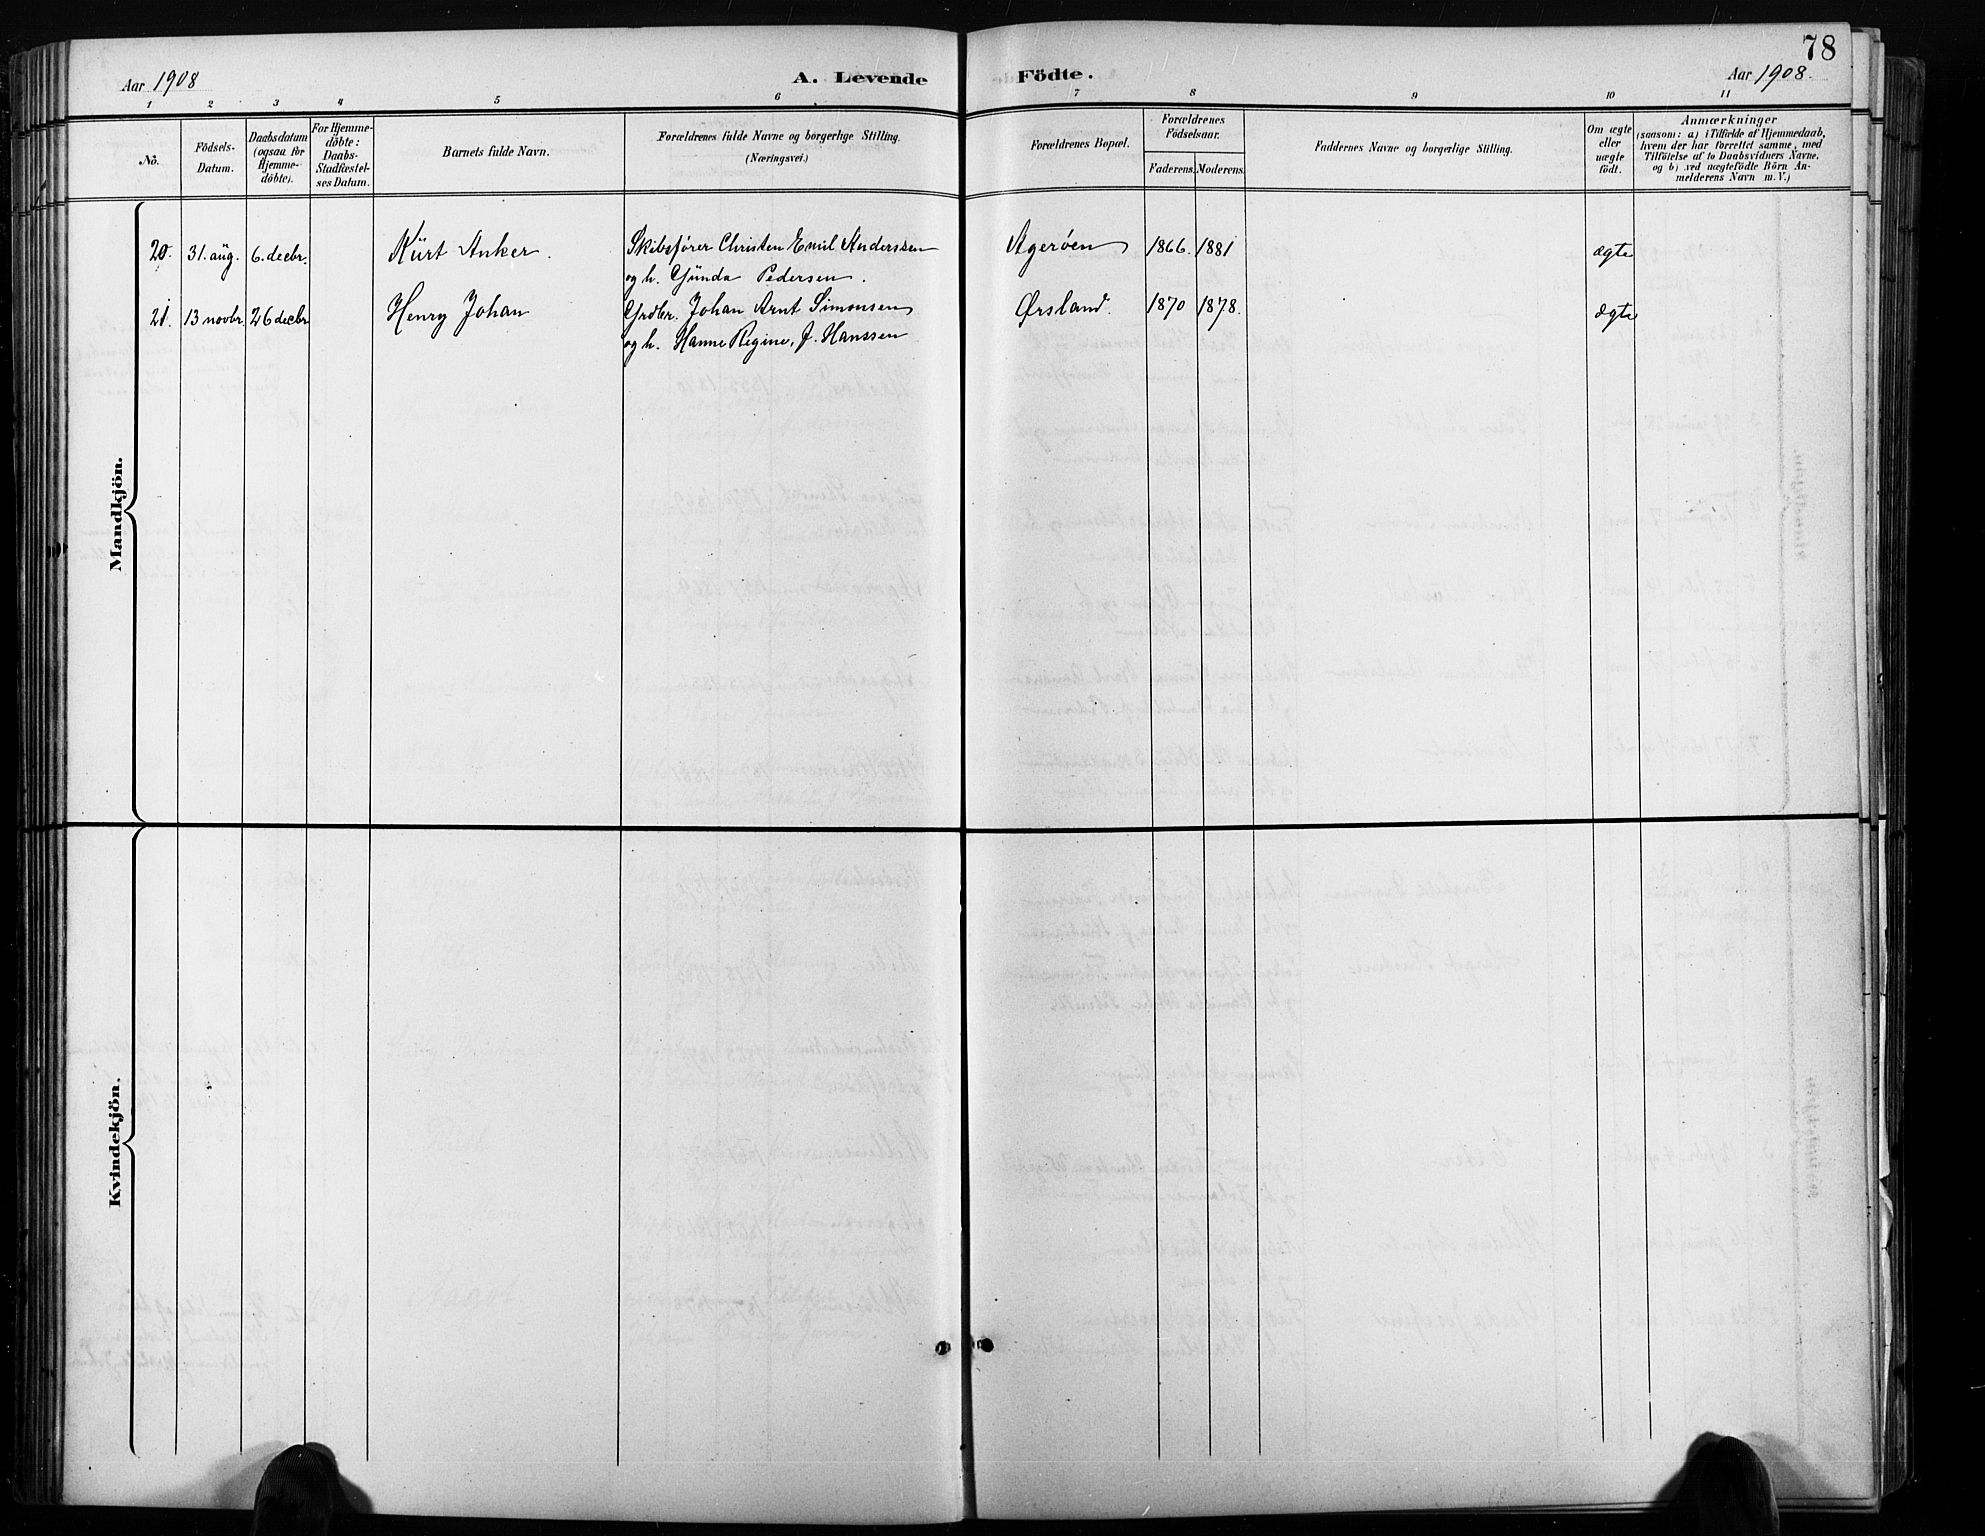 78
Aar 1908
A. Levende Födte.
Aar 1908.
1 2 3 4 5 6 7 8 9 10 11
No.
Födsels-
Datum.
Daabsdatum
(ogsaa for
Hjemme-
döbte).
For Hjemme-
döbte:
Daabs-
Stadfæstel-
ses Datum.
Barnets fulde Navn.
Forældrenes fulde Navne og borgerlige Stilling.
(Næringsvei.)
Forældrenes Bopæl.
Forældrenes
Födselsaar.
Faderens. Moderens.
Faddernes Navne og borgerlige Stilling.
Om ægte
eller
uægte
födt.
Anmærkninger
(saasom: a) i Tilfælde af Hjemmedaab,
hvem der har forrettet samme, med
Tilföielse af to Daabsvidners Navne,
og b) ved uægtefödte Börn An-
melderens Navn m. V.)
Mandkjön.
20. 31. aüg. 6. decbr. Kürt Anker. Skibsfører Christen Emil Anderssen Agerøen 1866. 1881 ægte
og h. Günda Pedersen.
21. 13 novbr. 26 decbr Henry Johan Grdbr. Johan Arnt Simonsen Ørsland. 1870 1878. ægte
og h. Hanne Regine, f. Hanssen
Kvindekjön.